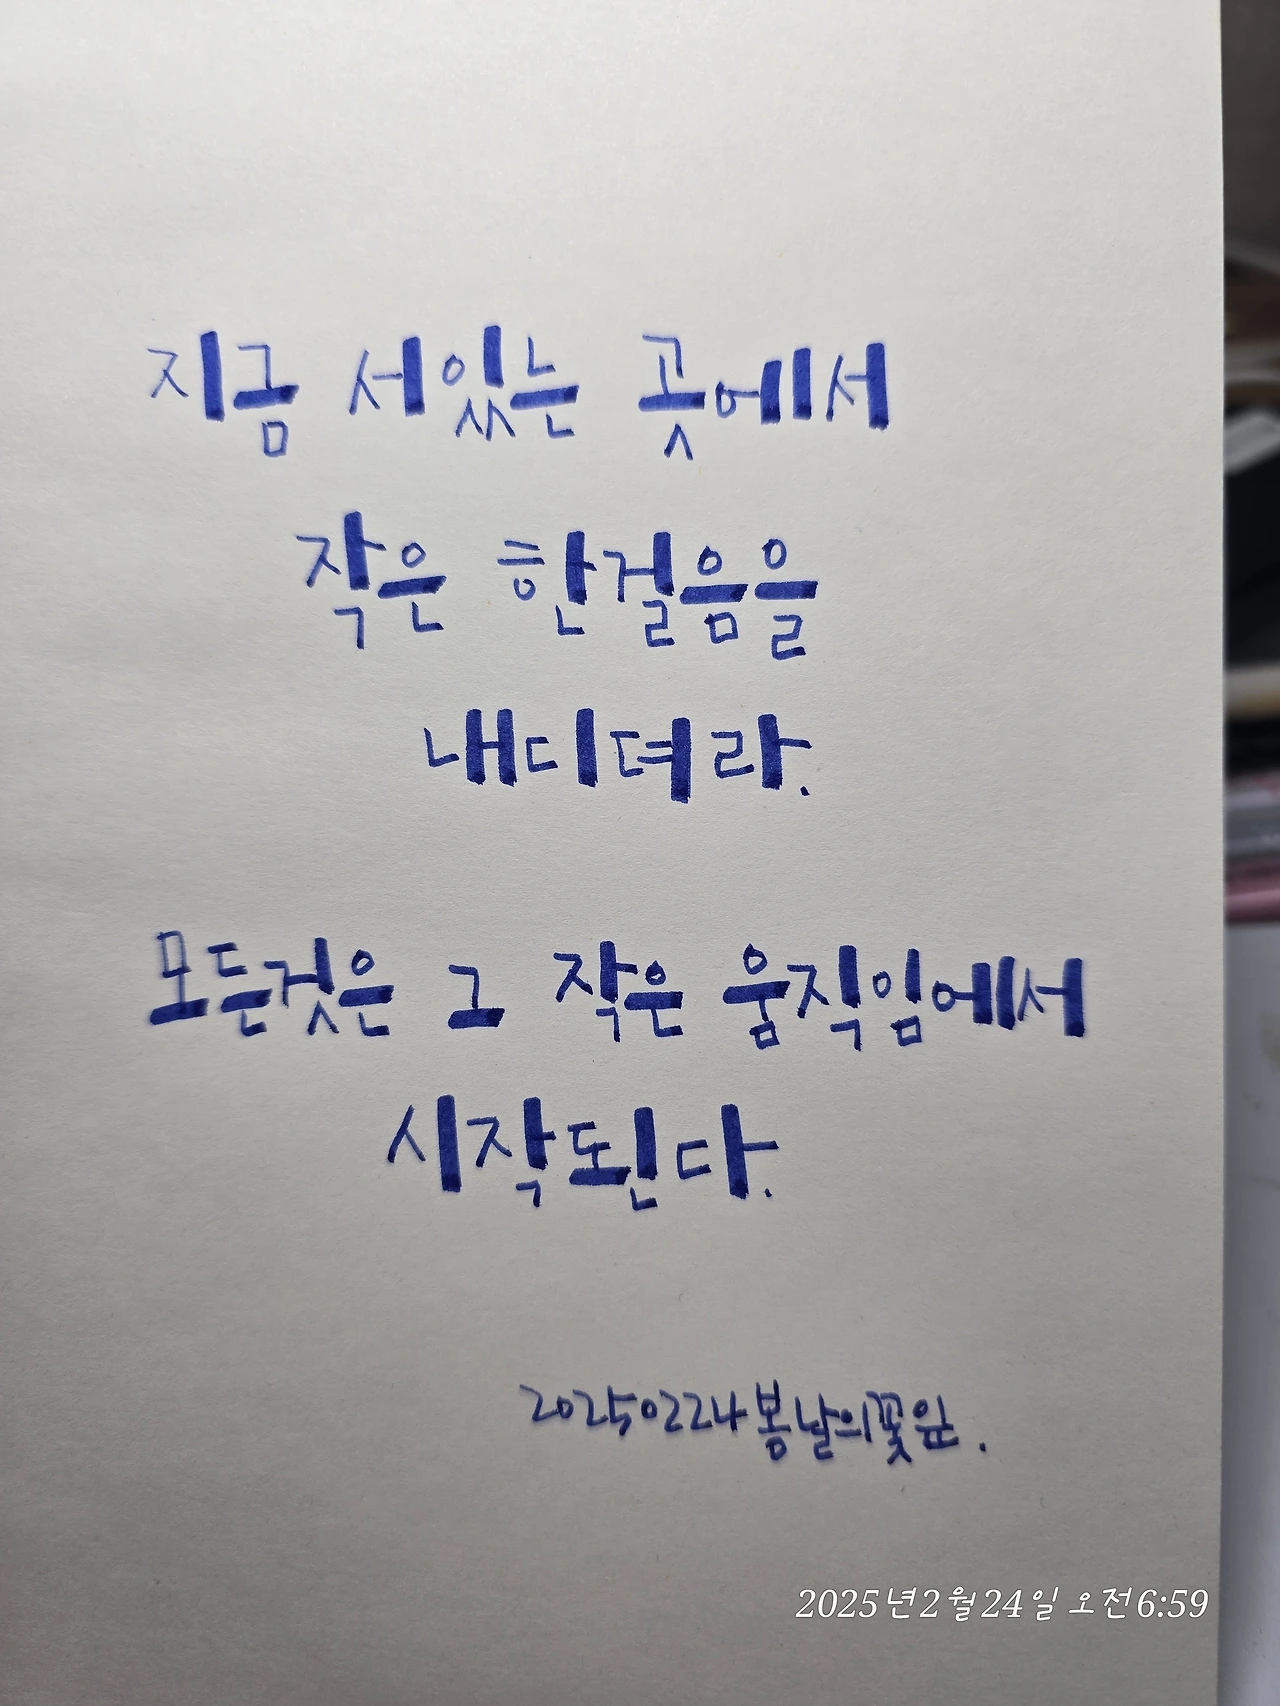 지금 서있는 곳에서
작은 한걸음을
내디뎌라.
모든것은 그 작은 움직임에서
시작된다.
20250224 봄날의꽃잎.
2025년 2월 24일 오전 6:59